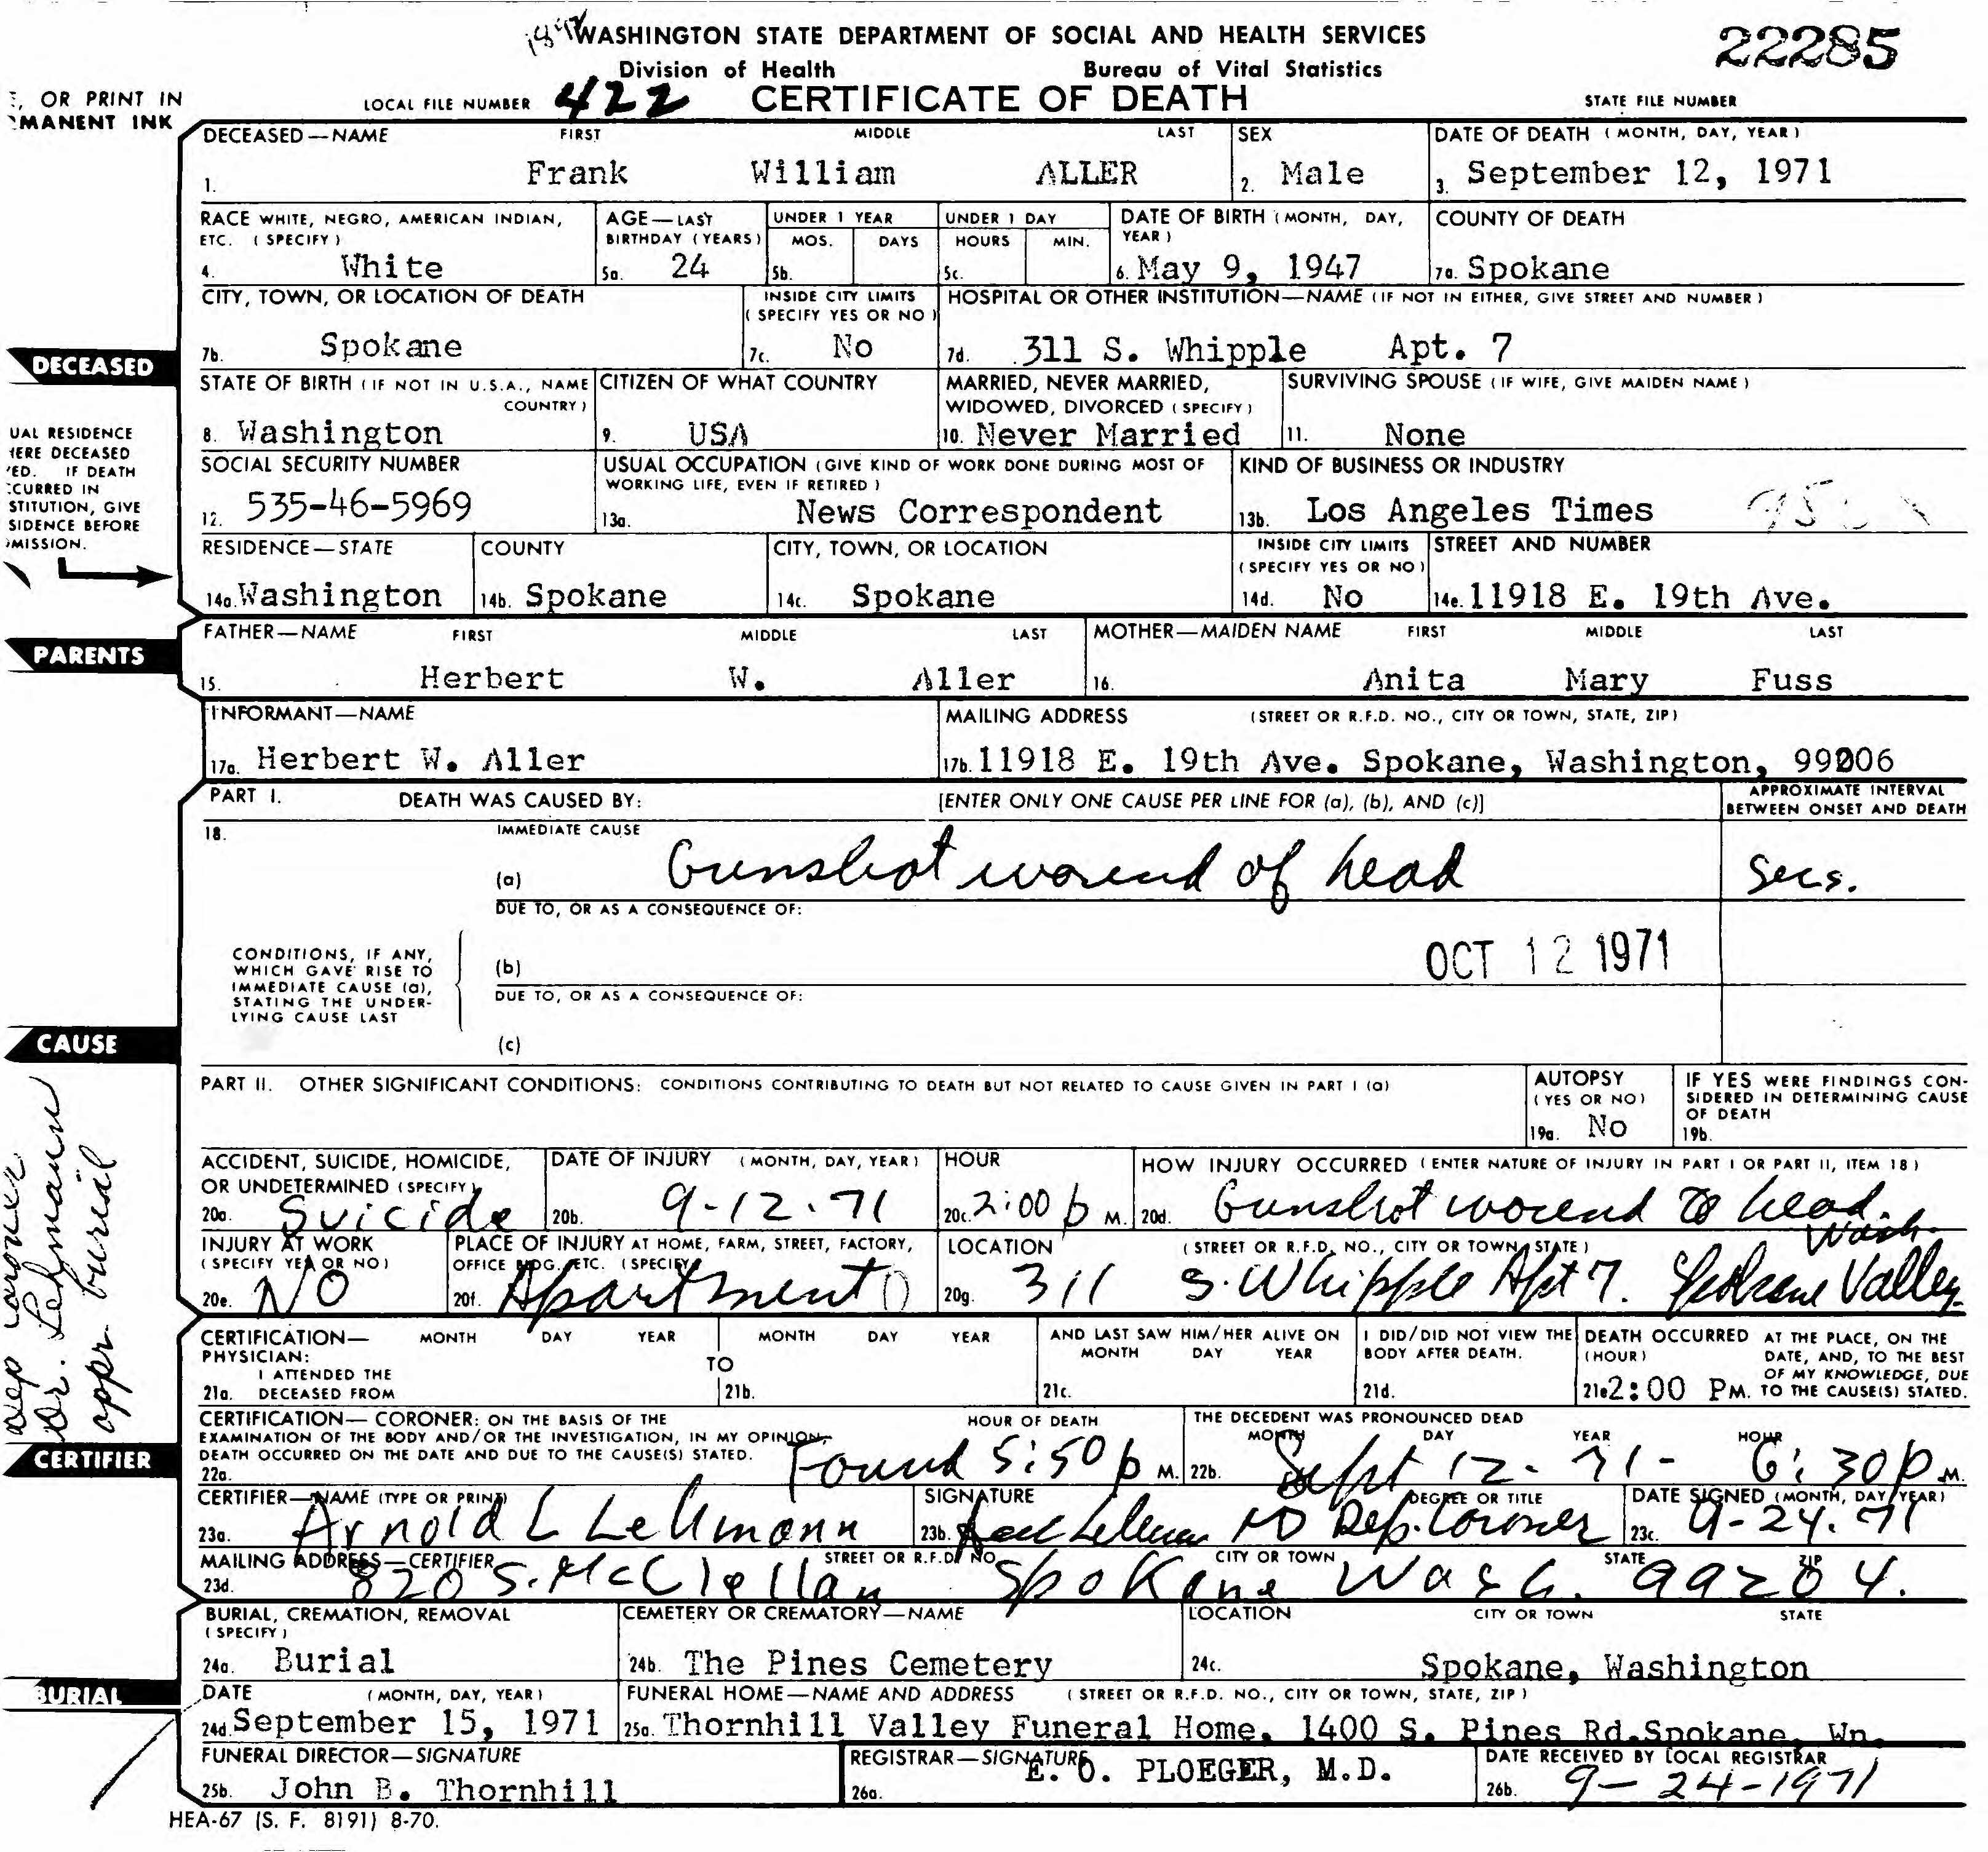 WASHINGTON STATE DEPARTMENT OF SOCIAL AND HEALTH SERVICES
22285
Division of Health Bureau of Vital Statistics
OR PRINT IN
MANENT INK
LOCAL FILE NUMBER 422 CERTIFICATE OF DEATH STATE FILE NUMBER
DECEASED—NAME FIRST MIDDLE LAST SEX DATE OF DEATH (MONTH, DAY, YEAR)
1. Frank William ALLER 2. Male 3. September 12, 1971
RACE WHITE, NEGRO, AMERICAN INDIAN, AGE—LAST UNDER 1 YEAR UNDER 1 DAY DATE OF BIRTH (MONTH, DAY, COUNTY OF DEATH
ETC. (SPECIFY) BIRTHDAY (YEARS) MOS. DAYS HOURS MIN. YEAR)
4. White 5a. 24 5b. 5c. 6. May 9, 1947 7a. Spokane
CITY, TOWN, OR LOCATION OF DEATH INSIDE CITY LIMITS HOSPITAL OR OTHER INSTITUTION—NAME (IF NOT IN EITHER, GIVE STREET AND NUMBER)
(SPECIFY YES OR NO)
7b. Spokane 7c. No 7d. 311 S. Whipple Apt. 7
DECEASED
STATE OF BIRTH (IF NOT IN U.S.A., NAME CITIZEN OF WHAT COUNTRY MARRIED, NEVER MARRIED, SURVIVING SPOUSE (IF WIFE, GIVE MAIDEN NAME)
COUNTRY) WIDOWED, DIVORCED (SPECIFY)
8. Washington 9. USA 10. Never Married 11. None
UAL RESIDENCE
HERE DECEASED
ED. IF DEATH
CCURRED IN
STITUTION, GIVE
SIDENCE BEFORE
MISSION.
SOCIAL SECURITY NUMBER USUAL OCCUPATION (GIVE KIND OF WORK DONE DURING MOST OF KIND OF BUSINESS OR INDUSTRY
WORKING LIFE, EVEN IF RETIRED)
12. 535-46-5969 13a. News Correspondent 13b. Los Angeles Times
RESIDENCE—STATE COUNTY CITY, TOWN, OR LOCATION INSIDE CITY LIMITS STREET AND NUMBER
(SPECIFY YES OR NO)
14a. Washington 14b. Spokane 14c. Spokane 14d. No 14e. 11918 E. 19th Ave.
PARENTS
FATHER—NAME FIRST MIDDLE LAST MOTHER—MAIDEN NAME FIRST MIDDLE LAST
15. Herbert W. Aller 16. Anita Mary Fuss
INFORMANT—NAME MAILING ADDRESS (STREET OR R.F.D. NO., CITY OR TOWN, STATE, ZIP)
17a. Herbert W. Aller 17b. 11918 E. 19th Ave. Spokane, Washington, 99206
PART I. DEATH WAS CAUSED BY: [ENTER ONLY ONE CAUSE PER LINE FOR (a), (b), AND (c)] APPROXIMATE INTERVAL
BETWEEN ONSET AND DEATH
18. IMMEDIATE CAUSE
(a) Gunshot wound of head Secs.
DUE TO, OR AS A CONSEQUENCE OF:
CONDITIONS, IF ANY,
WHICH GAVE RISE TO
IMMEDIATE CAUSE (a),
STATING THE UNDER-
LYING CAUSE LAST
(b) OCT 12 1971
DUE TO, OR AS A CONSEQUENCE OF:
(c)
CAUSE
PART II. OTHER SIGNIFICANT CONDITIONS: CONDITIONS CONTRIBUTING TO DEATH BUT NOT RELATED TO CAUSE GIVEN IN PART I (a) AUTOPSY IF YES WERE FINDINGS CON-
(YES OR NO) SIDERED IN DETERMINING CAUSE
OF DEATH
19a. No 19b.
Dep Coroner
Dr. Lehmann
appr. burial
ACCIDENT, SUICIDE, HOMICIDE, DATE OF INJURY (MONTH, DAY, YEAR) HOUR HOW INJURY OCCURRED (ENTER NATURE OF INJURY IN PART I OR PART II, ITEM 18)
OR UNDETERMINED (SPECIFY)
20a. Suicide 20b. 9-12-71 20c. 2:00 p M. 20d. Gunshot wound to head.
INJURY AT WORK PLACE OF INJURY AT HOME, FARM, STREET, FACTORY, LOCATION (STREET OR R.F.D. NO., CITY OR TOWN, STATE) Wash.
(SPECIFY YES OR NO) OFFICE BLDG., ETC. (SPECIFY)
20e. NO 20f. Apartment 20g. 311 S. Whipple Apt 7. Spokane Valley
CERTIFICATION— MONTH DAY YEAR MONTH DAY YEAR AND LAST SAW HIM/HER ALIVE ON I DID/DID NOT VIEW THE DEATH OCCURRED AT THE PLACE, ON THE
PHYSICIAN: TO MONTH DAY YEAR BODY AFTER DEATH. (HOUR) DATE, AND, TO THE BEST
I ATTENDED THE OF MY KNOWLEDGE, DUE
21a. DECEASED FROM 21b. 21c. 21d. 21e 2:00 PM. TO THE CAUSE(S) STATED.
CERTIFIER
CERTIFICATION—CORONER: ON THE BASIS OF THE HOUR OF DEATH THE DECEDENT WAS PRONOUNCED DEAD
EXAMINATION OF THE BODY AND/OR THE INVESTIGATION, IN MY OPINION, MONTH DAY YEAR HOUR
DEATH OCCURRED ON THE DATE AND DUE TO THE CAUSE(S) STATED.
22a. Found 5:50 p M. 22b. Sept 12- 71- 6:30 p M.
CERTIFIER—NAME (TYPE OR PRINT) SIGNATURE DEGREE OR TITLE DATE SIGNED (MONTH, DAY, YEAR)
23a. Arnold L Lehmann 23b. MD Dep. Coroner 23c. 9-24-71
MAILING ADDRESS—CERTIFIER STREET OR R.F.D. NO. CITY OR TOWN STATE ZIP
23d. 820 S. McClellan Spokane Wash. 99204.
BURIAL
BURIAL, CREMATION, REMOVAL CEMETERY OR CREMATORY—NAME LOCATION CITY OR TOWN STATE
(SPECIFY)
24a. Burial 24b. The Pines Cemetery 24c. Spokane, Washington
DATE (MONTH, DAY, YEAR) FUNERAL HOME—NAME AND ADDRESS (STREET OR R.F.D. NO., CITY OR TOWN, STATE, ZIP)
24d. September 15, 1971 25a. Thornhill Valley Funeral Home, 1400 S. Pines Rd.Spokane, Wn.
FUNERAL DIRECTOR—SIGNATURE REGISTRAR—SIGNATURE DATE RECEIVED BY LOCAL REGISTRAR
25b. John B. Thornhill 26a. E. O. PLOEGER, M.D. 26b. 9-24-1971
HEA-67 (S. F. 8191) 8-70.